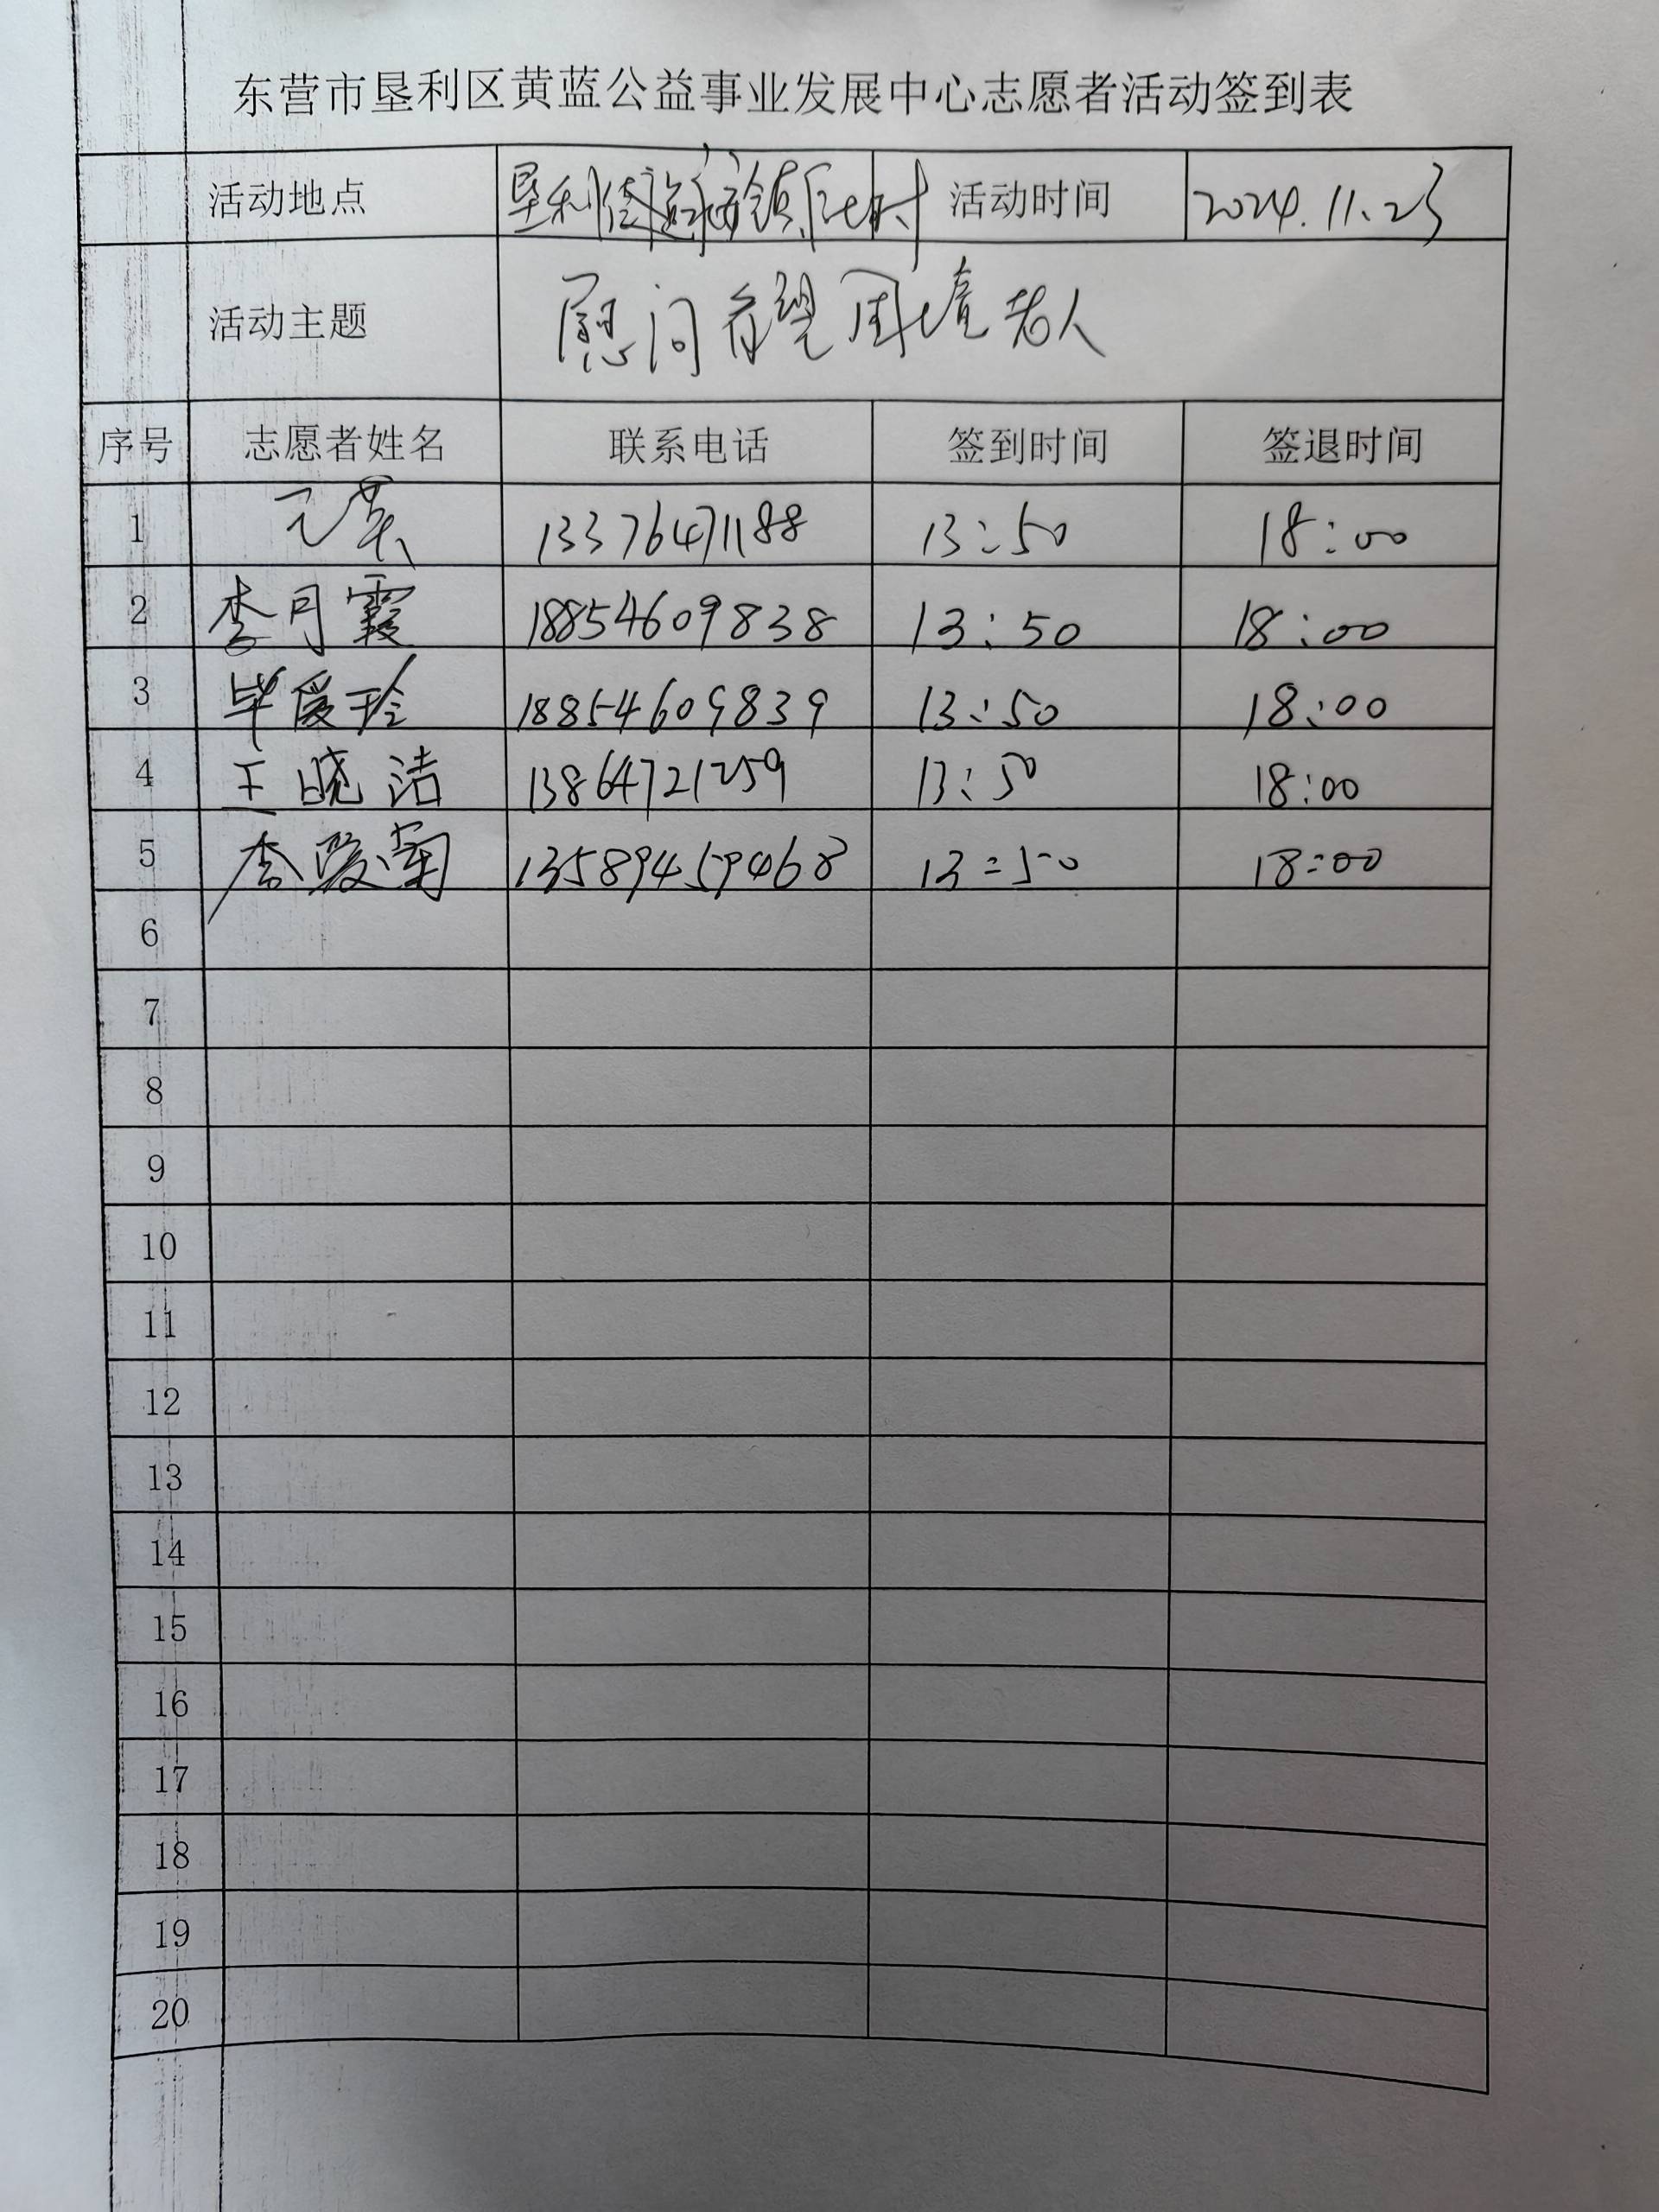 东营市垦利区黄蓝公益事业发展中心志愿者活动签到表
活动地点 垦利街道 活动时间 2024.11.23
活动主题 慰问希望困境老人
序号 志愿者姓名 联系电话 签到时间 签退时间
1 13376471188 13:50 18:00
2 李月霞 18854609838 13:50 18:00
3 毕爱玲 18854609839 13:50 18:00
4 王晓洁 13864721259 13:50 18:00
5 李爱菊 13589459468 13:50 18:00
6
7
8
9
10
11
12
13
14
15
16
17
18
19
20